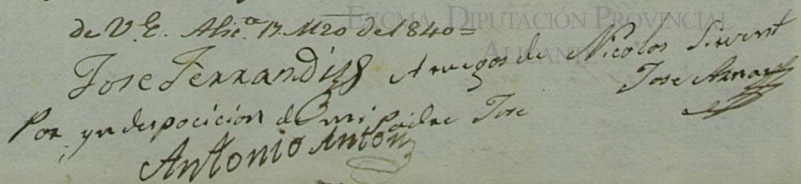 EXCMA. DIPUTACIÓN PROVINCIAL
ALICANTE
de V.E. Alic.te 13 Mzo de 1840=
Jose Ferrandiz Arruegos de Nicolas Sirvent
Jose Aznar
Por yndespocicion de mi padre Jose
Antonio Anton